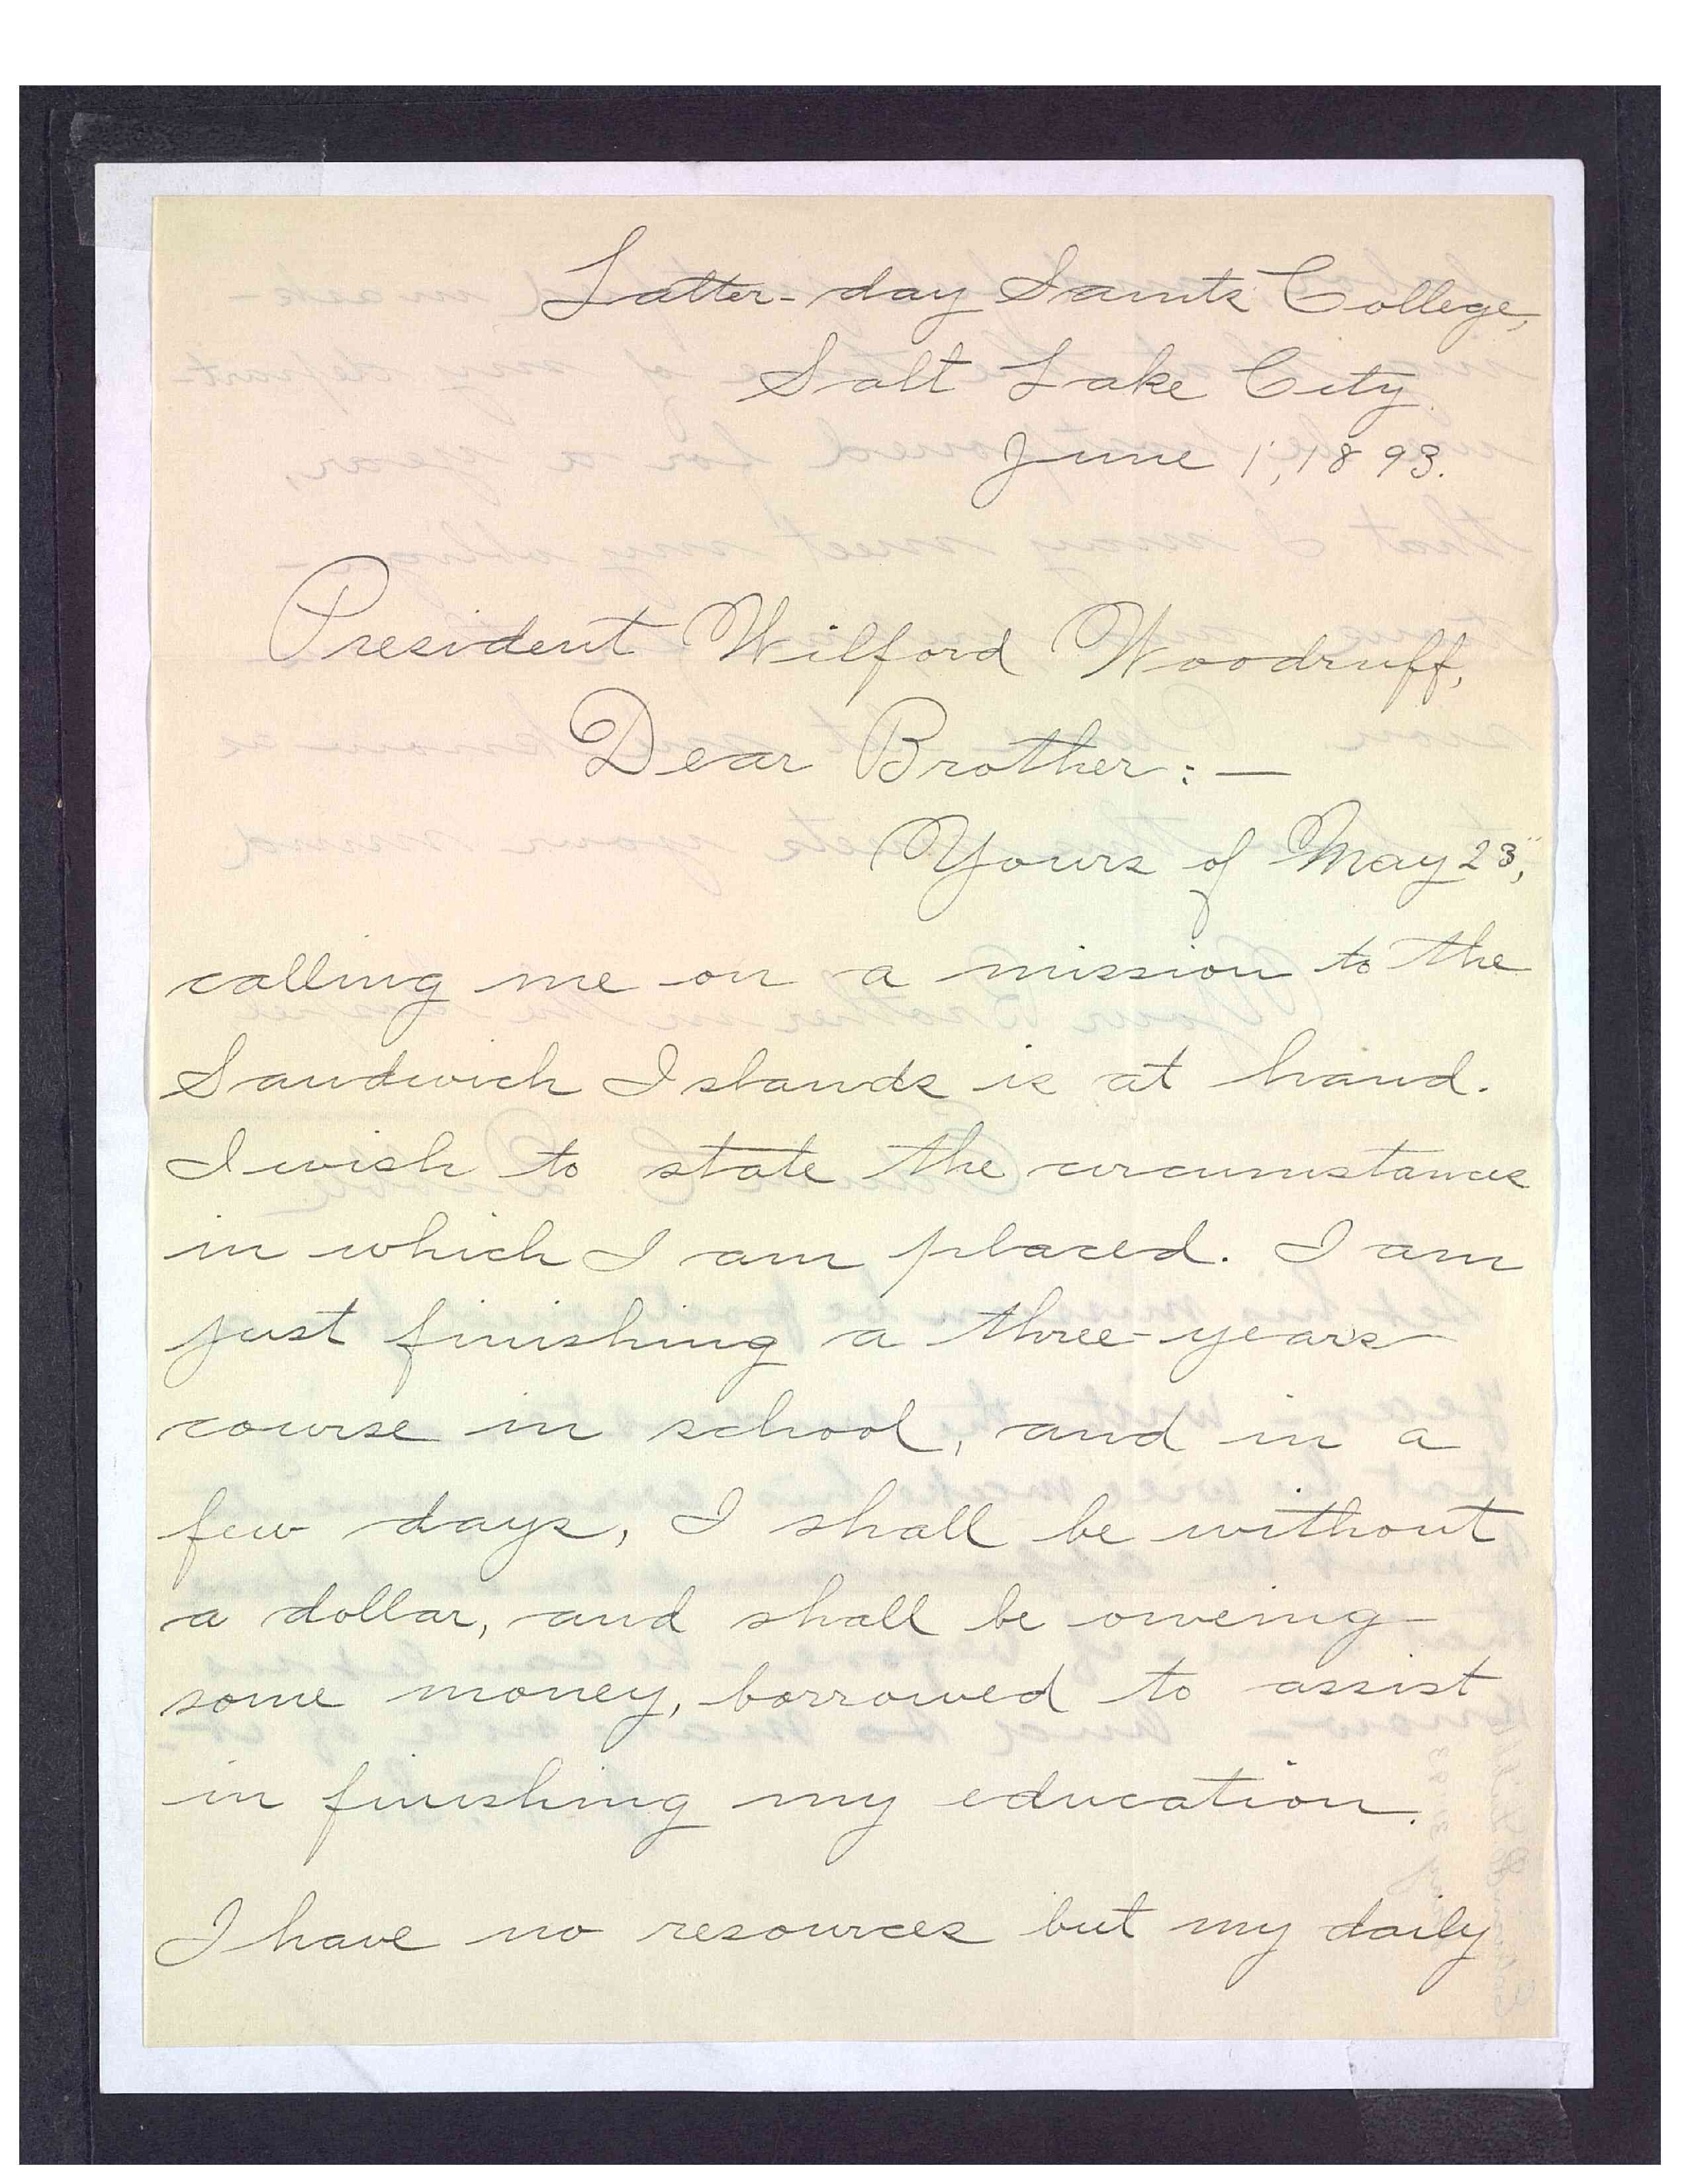 Latter-day Saints College,
Salt Lake City.
June 1, 1893.
President Wilford Woodruff,
Dear Brother:—
Yours of May 23",
calling me on a mission to the
Sandwich Islands is at hand.
I wish to state the circumstances
in which I am placed. I am
just finishing a three-years
course in school, and in a
few days, I shall be without
a dollar, and shall be oweing
some money, borrowed to assist
in finishing my education.
I have no resources but my daily